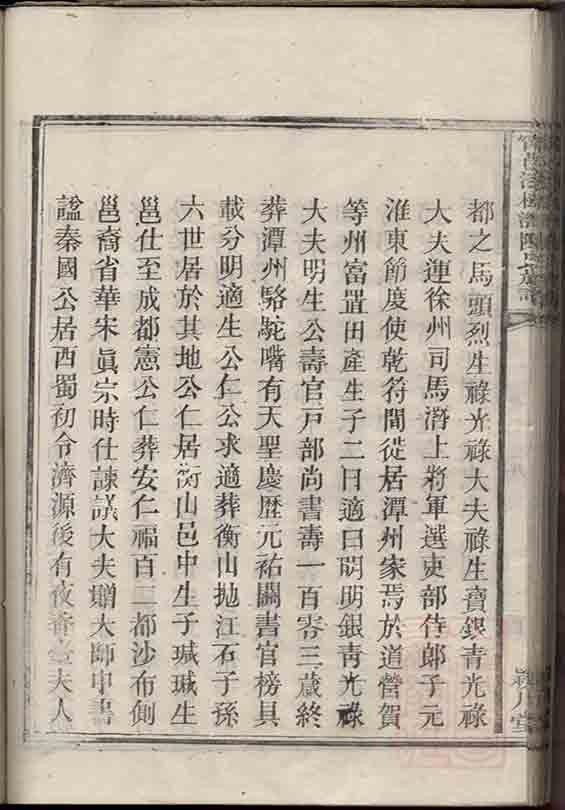 都之馬頭烈生祿光祿大夫祿生寶銀青光祿
大夫運徐州司馬潸上將軍選吏部侍郎子元
淮東節度使乾符間徙居潭州家焉於道營賀
等州富置田產生子二曰適曰明明銀青光祿
大夫明生公壽官戸部尚書壽一百零三歲終
葬潭州駱駝嘴有天聖慶歷元祐鬮書官榜具
載分明適生公仁公求適葬衡山拋江石子孫
六世居於其地公仁居衡山邑中生子瑊瑊生
邕仕至成都憲公仁葬安仁福百二都沙布側
邕裔省華宋眞宗時仕諫議大夫贈大師中書
諡秦國公居西蜀初令濟源後有夜夫人
族譜
潁川堂